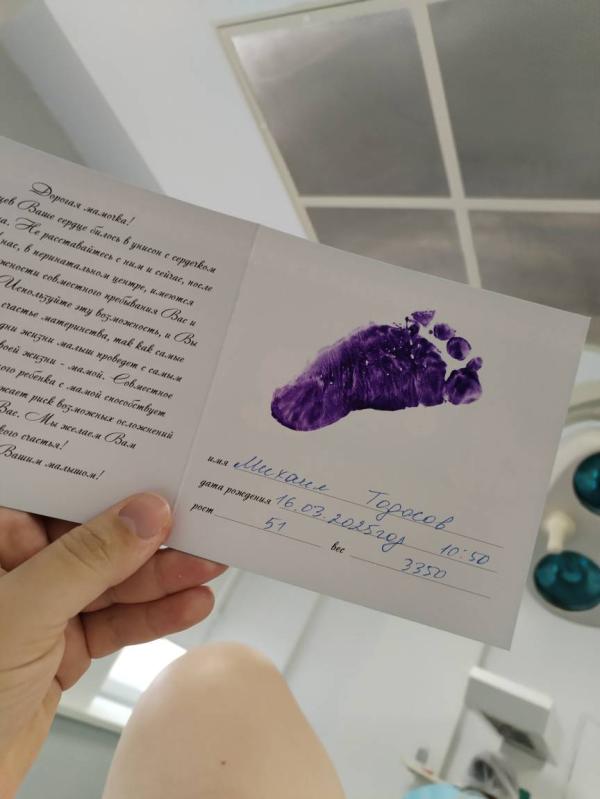 Дорогая мамочка!
Ваше сердце билось в унисон с сердечком
Не расставайтесь с ним и сейчас, после
нас, в перинатальном центре, имеются
совместного пребывания Вас и
Используйте эту возможность, и Вы
счастье материнства, так как самые
дни жизни малыш проведет с самым
жизни - мамой. Совместное
ребенка с мамой способствует
риск возможных осложнений
Вас. Мы желаем Вам
счастья!
Вашим малышом!
имя Михаил Тодосов
дата рождения 16.03.2025год 10:50
рост 51 вес 3350